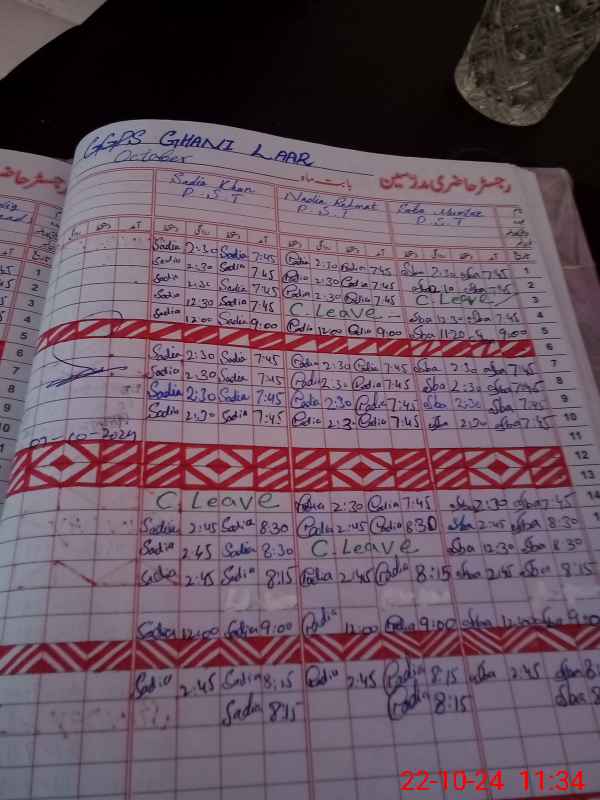 GGPS GHANI LAAR
October بابت ماہ رجسٹر حاضری مدرسین
Sadia Khan Nadia Rehmat Saba Mumtaz
P.S.T P.S.T P.S.T
Sadia 2:30 Sadia 7:45 Nadia 2:30 Nadia 7:45 Sba 2:30 Sba 7:45 1
Sadia 2:30 Sadia 7:45 Nadia 2:30 Nadia 7:45 Sba Sba 7:45 2
Sadia 2:30 Sadia 7:45 Nadia 2:30 Nadia 7:45 C.Leave 3
Sadia 12:30 Sadia 7:45 C.Leave Sba 12:30 Sba 7:45 4
Sadia 12:00 Sadia 9:00 Nadia 12:00 Nadia 9:00 Sba 11:20 9:00 5
6
Sadia 2:30 Sadia 7:45 Nadia 2:30 Nadia 7:45 Sba 2:30 Sba 7:45 7
Sadia 2:30 Sadia 7:45 Nadia 2:30 Nadia 7:45 Sba 2:30 Sba 7:45 8
Sadia 2:30 Sadia 7:45 Nadia 2:30 Nadia 7:45 Sba 2:30 Sba 7:45 9
Sadia 2:30 Sadia 7:45 Nadia 2:30 Nadia 7:45 Sba 2:30 Sba 7:45 10
-10-2024 11
12
13
C.Leave Nadia 2:30 Nadia 7:45 Sba 2:30 Sba 7:45 14
Sadia 2:45 Sadia 8:30 Nadia 2:45 Nadia 8:30 Sba 2:45 Sba 8:30
Sadia 2:45 Sadia 8:30 C.Leave Sba 12:30 Sba 8:30
Sadia 2:45 Sadia 8:15 Nadia 2:45 Nadia 8:15 Sba 2:45 Sba 8:15
Sadia 12:00 Sadia 9:00 Nadia 12:00 Nadia 9:00 Sba 12:00 Sba 9:00
Sadia 2:45 Sadia 8:15 Nadia 2:45 Nadia 8:15 Sba 2:45 Sba 8:
Sadia 8:15 Nadia 8:15 Sba 8
22-10-24 11:34